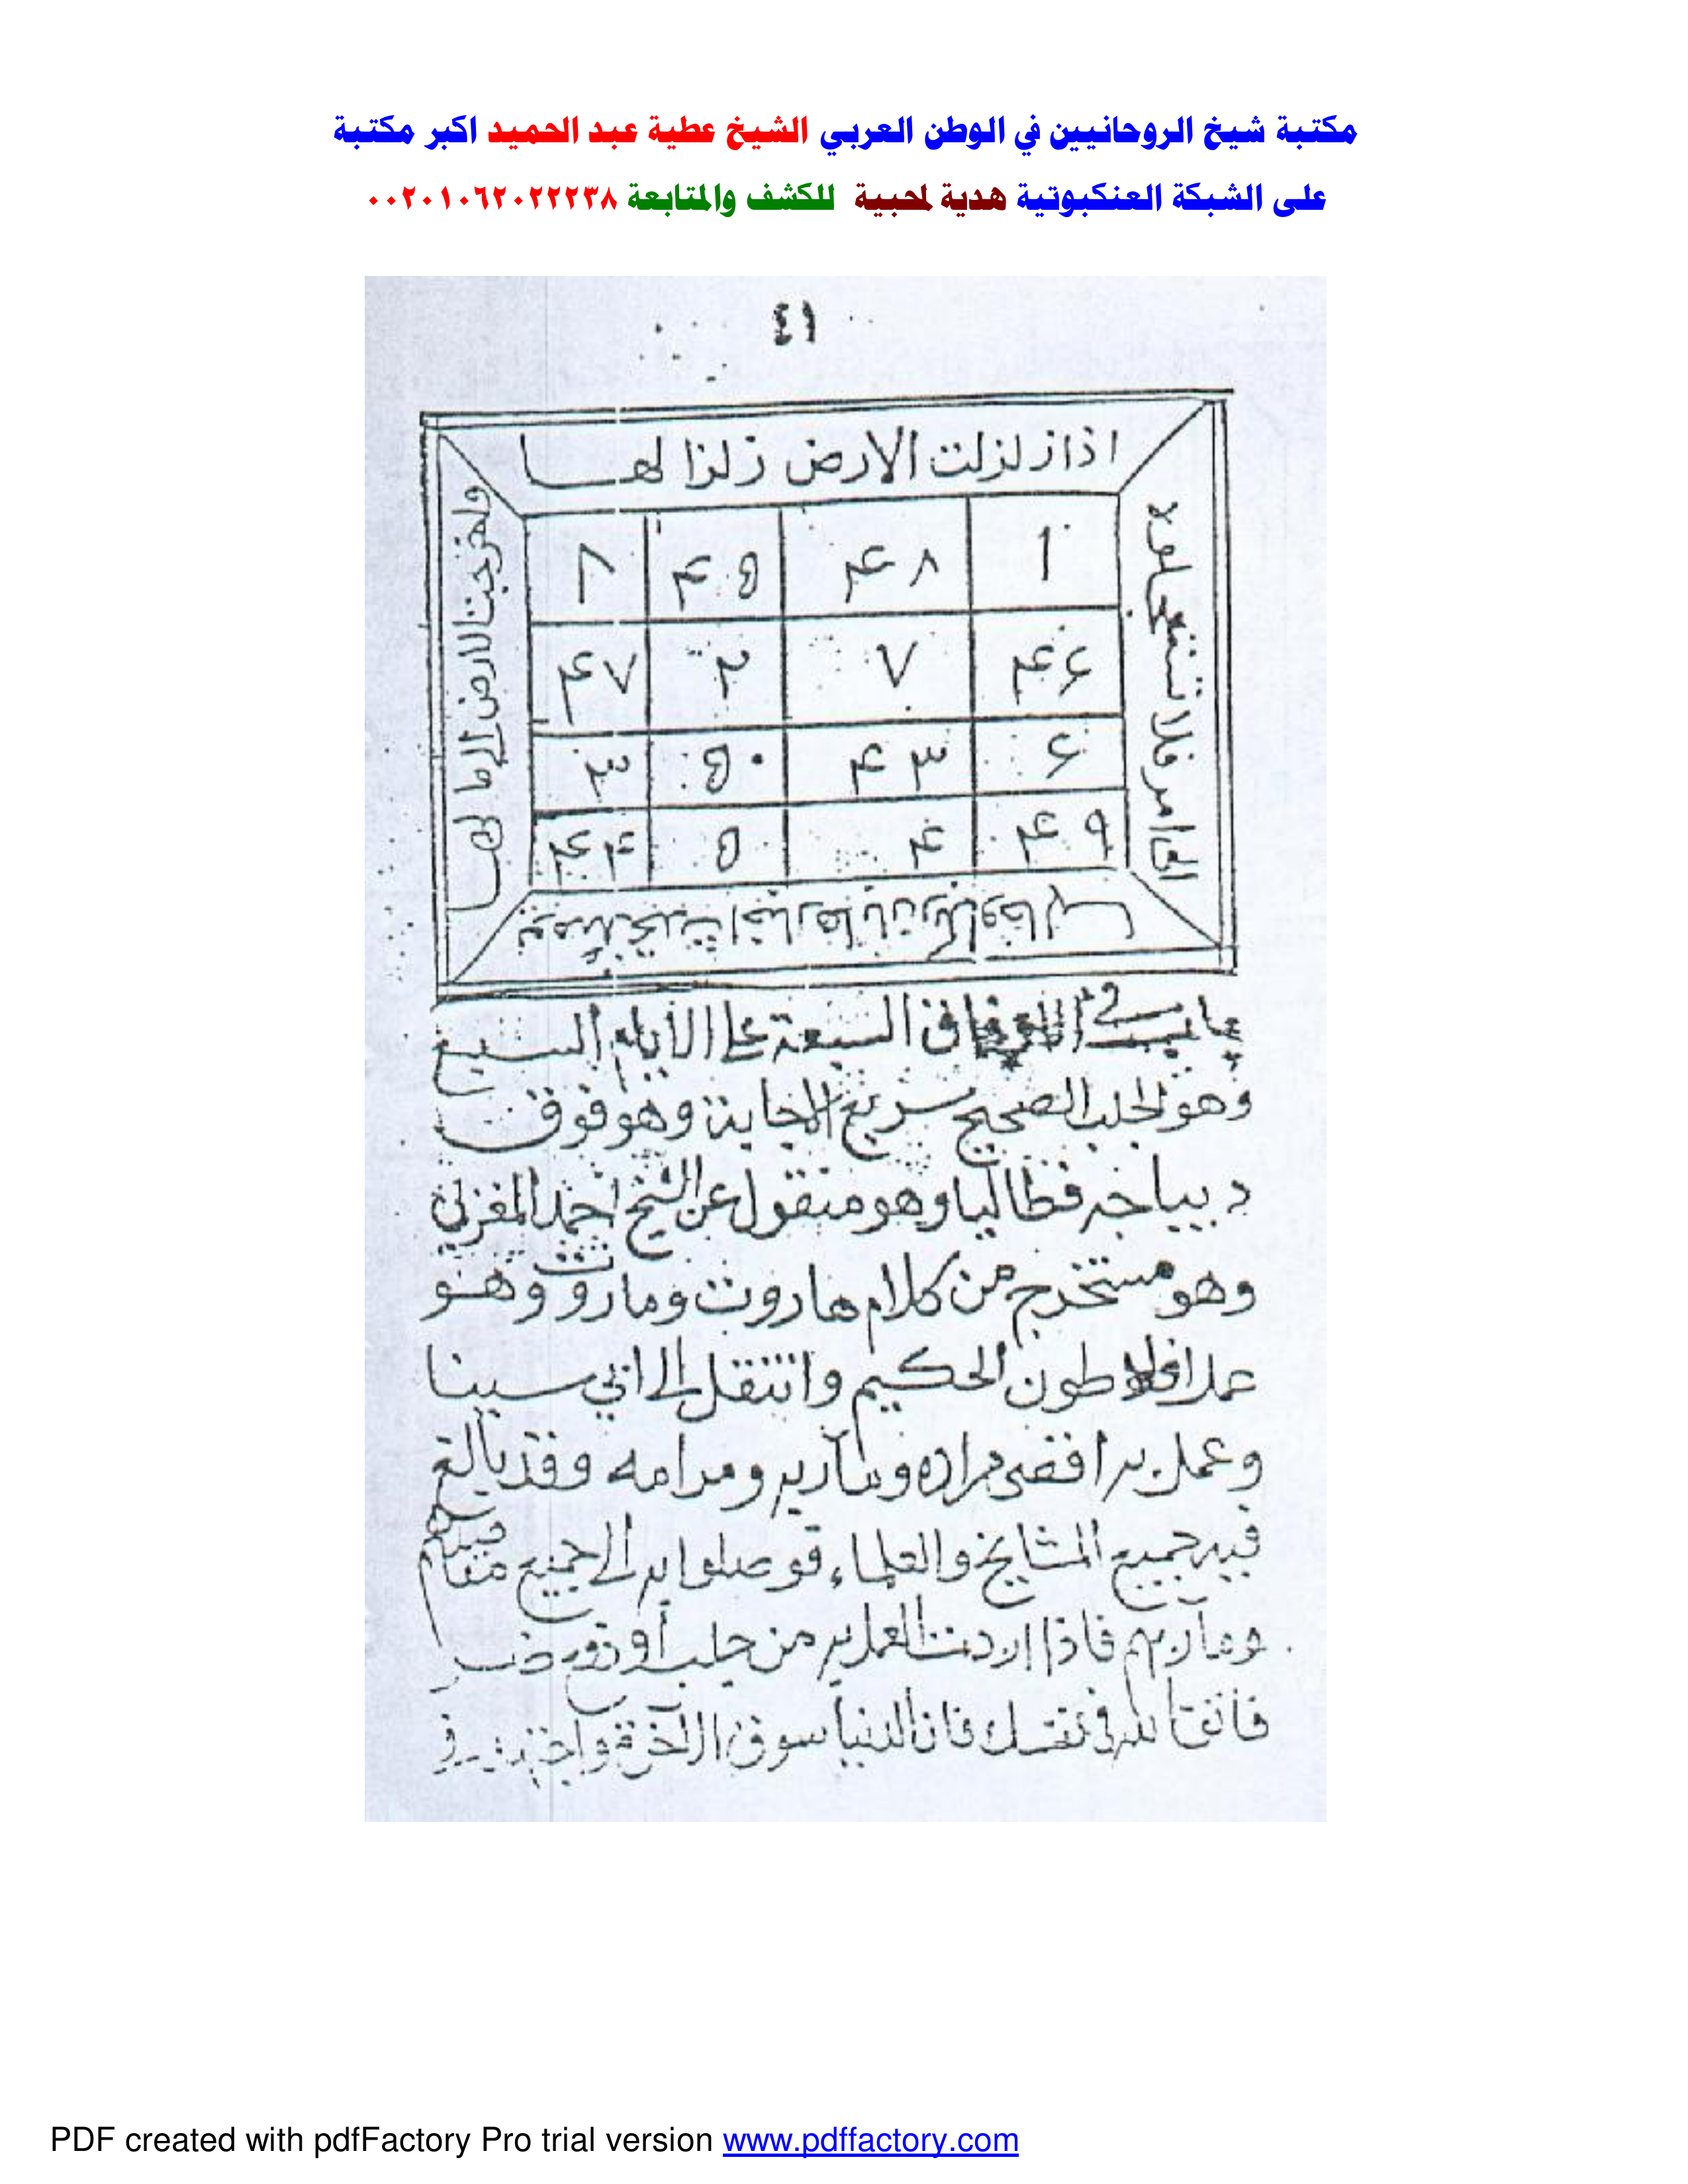 مكتبة شيخ الروحانيين في الوطن العربي الشيخ عطية عبد الحميد اكبر مكتبة
على الشبكة العنكبوتية هدية لمحبية للكشف والمتابعة ٠٠٢٠١٠٦٢٠٢٢٢٣٨
٤١
اذا زلزلت الارض زلزالها
واخرجت الارض
الى امر فلا تستعجلوه
١ ٤٨ ٤٥ ٨
٤٦ ٧ ٢ ٤٧
٦ ٤٣ ٥٠ ٣
٤٩ ٤ ٥ ٤٤
يومئذ تحدث اخبارها بان ربك اوحى لها
السبعة على الأيام السبع
وهو الجلب الصحيح سريع الاجابة وهو فوق
ديباجه فظاليا وهو منقول عن الشيخ احمد المغربي
وهو مستخرج من كلام هاروت وماروت وهو
عمل افلاطون الحكيم وانتقل الى ابي سينا
وعمل به مراده ومآربه ومرامه وقد بالغ
فيه جميع المشايخ والعلماء الى جميع
ومآربهم فاذا اردت العمل به من جلب أو
فاتق الله في نفسك فان الدنيا سوق الآخرة
PDF created with pdfFactory Pro trial version www.pdffactory.com